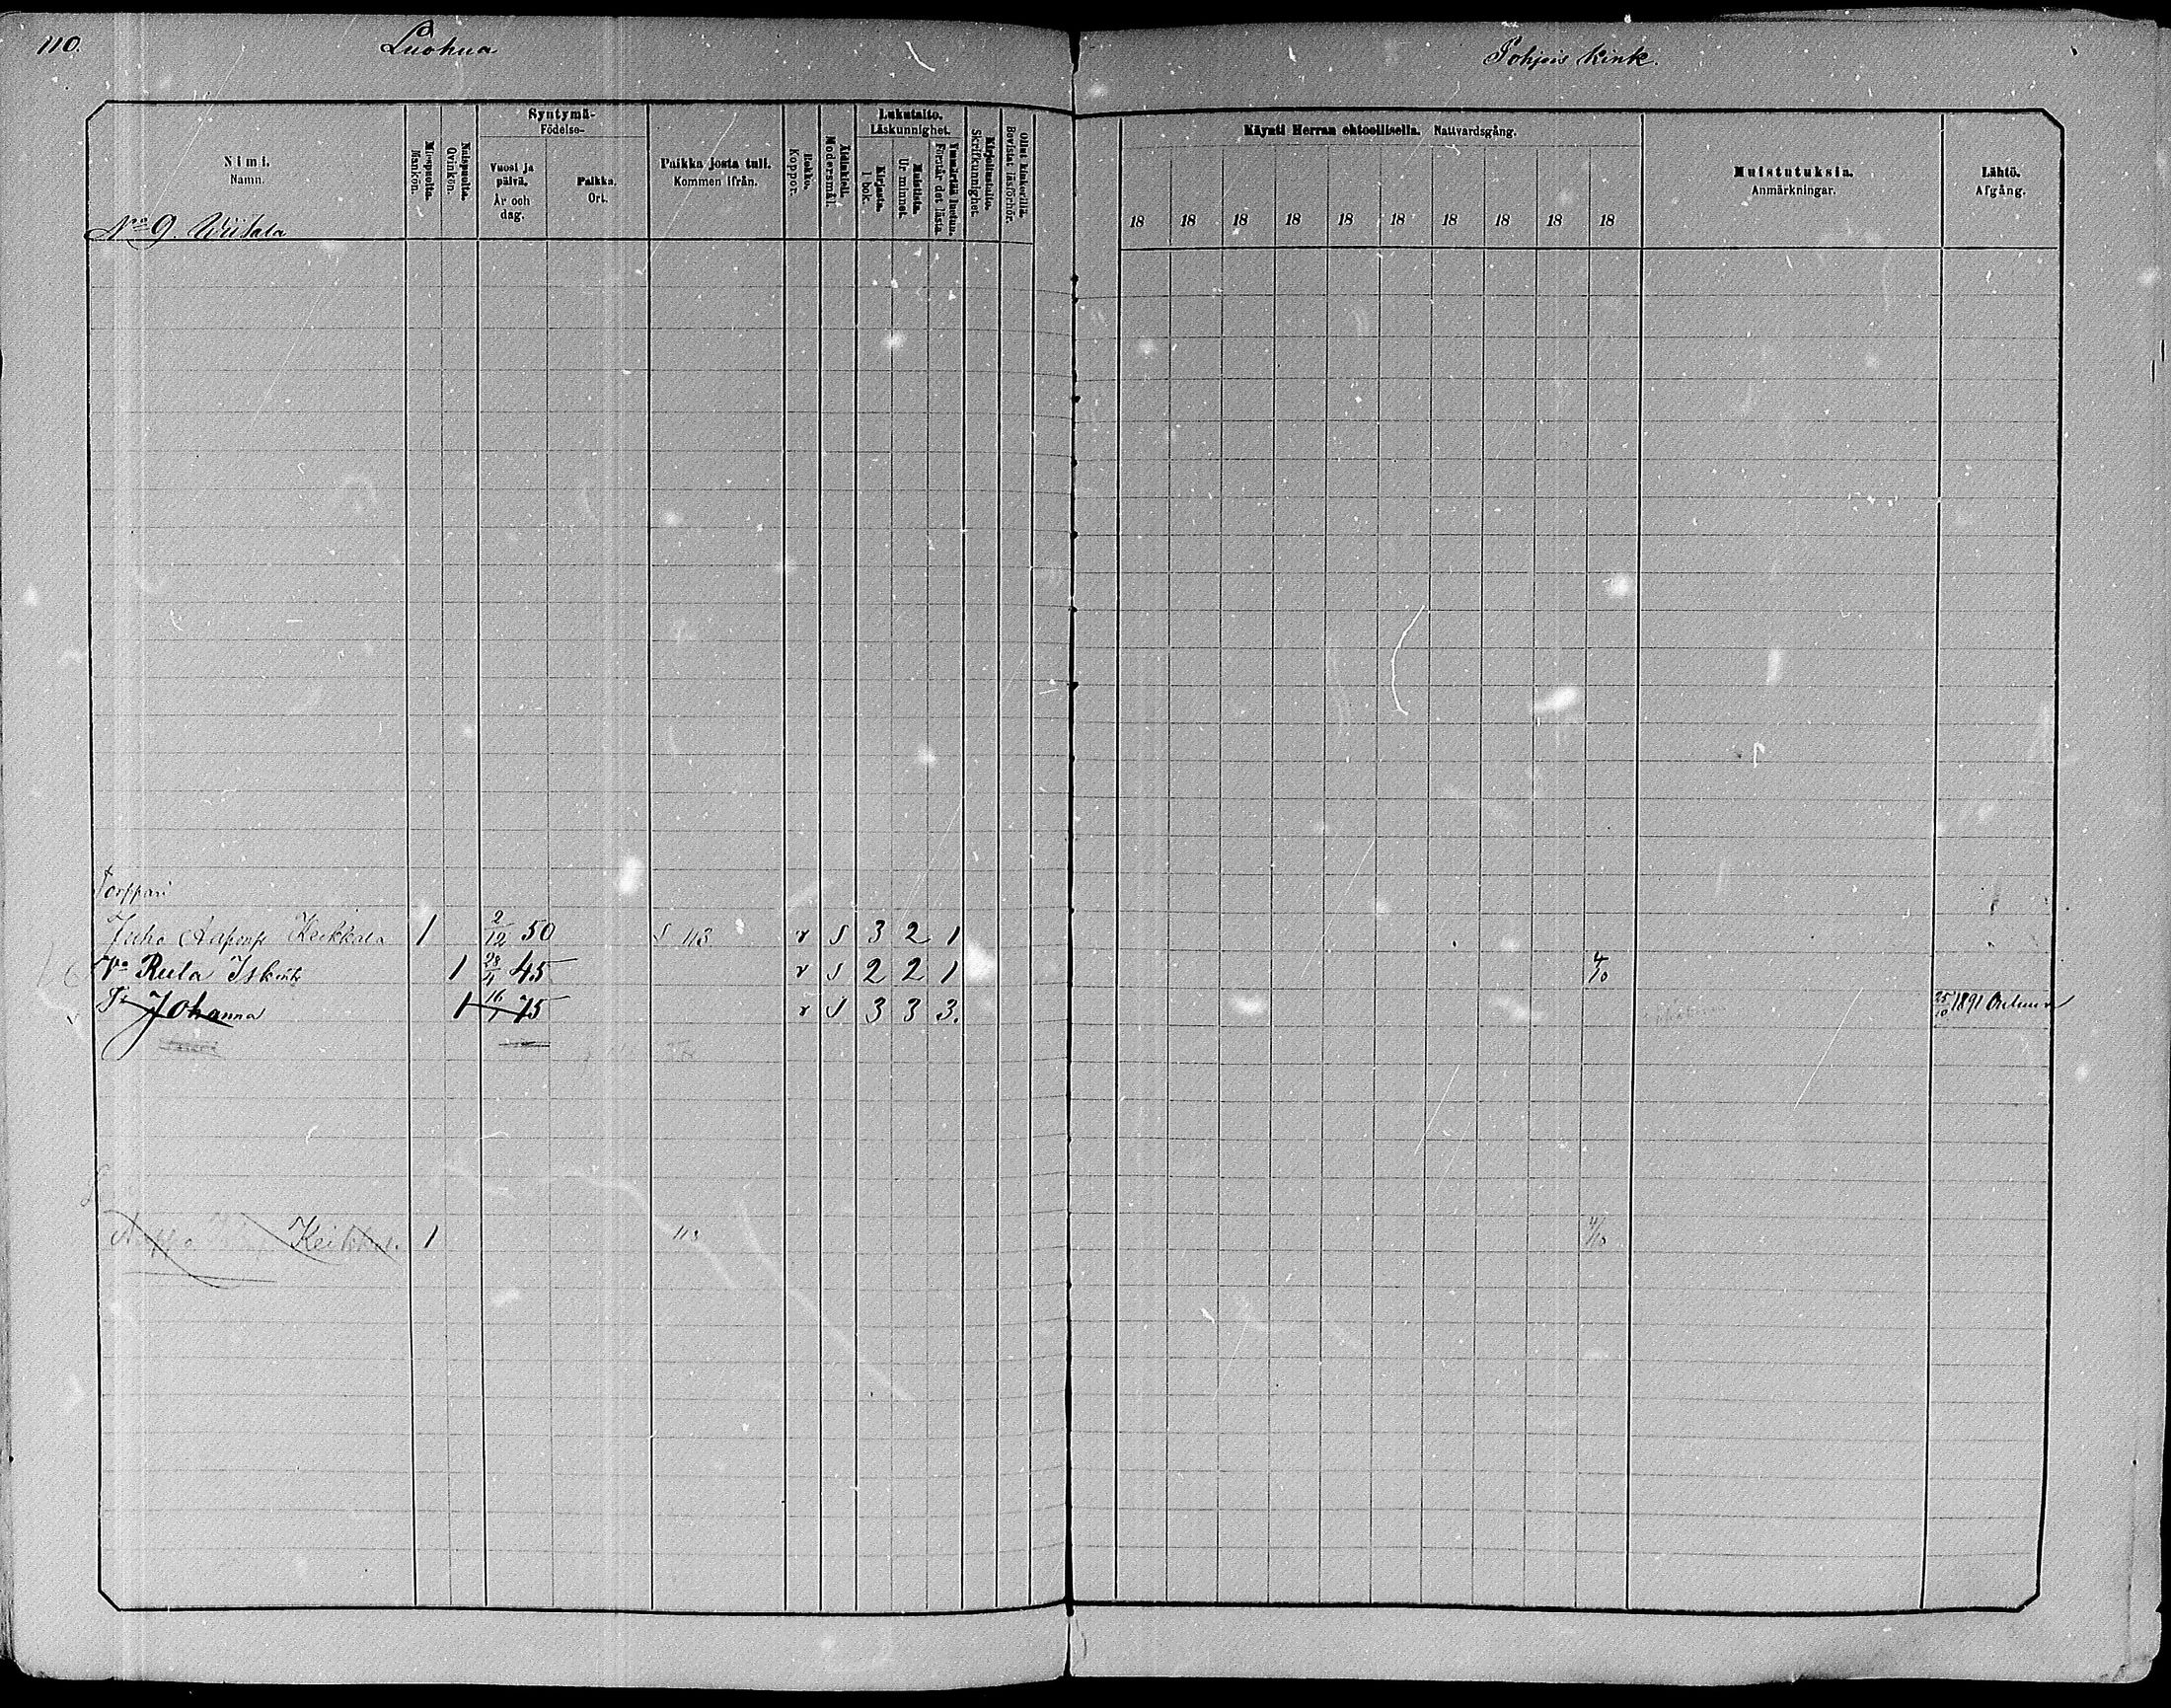 110.
Luohua
Pohjois kink.
Syntymä-
Födelse-
Lukutaito.
Läskunnighet.
Käynti Herran ehtoollisella. Nattvardsgång.
Nimi.
Namn.
Miespuolta.
Mankön.
Naispuolta.
Qvinkön.
Vuosi ja päivä.
År och dag.
Paikka.
Ort.
Paikka josta tuli.
Kommen ifrån.
Rokko.
Koppor.
Äidinkieli.
Modersmål.
Kirjasta.
I bok.
Muistista.
Ur minnet.
Ymmärtää luetun.
Förstår det lästa.
Kirjoitustaito.
Skrifkunnighet.
Ollut kinkerillä.
Bevistat läsförhör.
18 18 18 18 18 18 18 18 18 18
Muistutuksia.
Anmärkningar.
Lähtö.
Afgång.
No 9. Wiitala
Torppari
Juho Aaponp Keikkala 1 2/12 50 S 113 r S 3 2 1
Vo Ruta Isk 1 28/4 45 r S 2 2 1 4/10
Tr Johanna 1 16/1 75 r S 3 3 3. 25/10 1891 Ouluun
Keikkal. 1 113 4/10